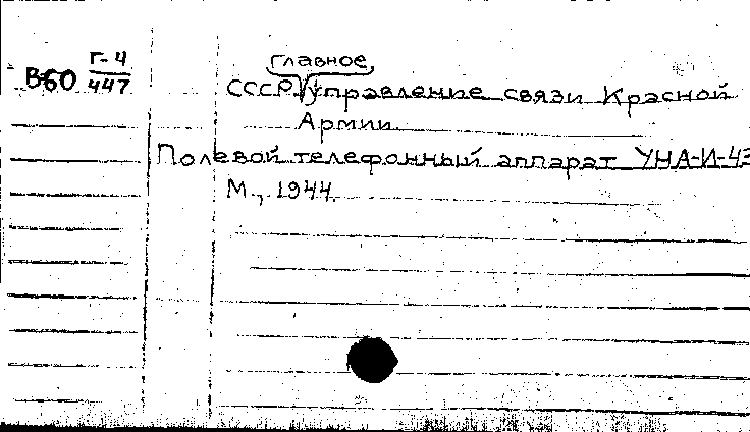 Г-4
В60 447
главное
СССР. Управление связи Красной
Армии.
Полевой телефонный аппарат УНА-И-43
М., 1944.